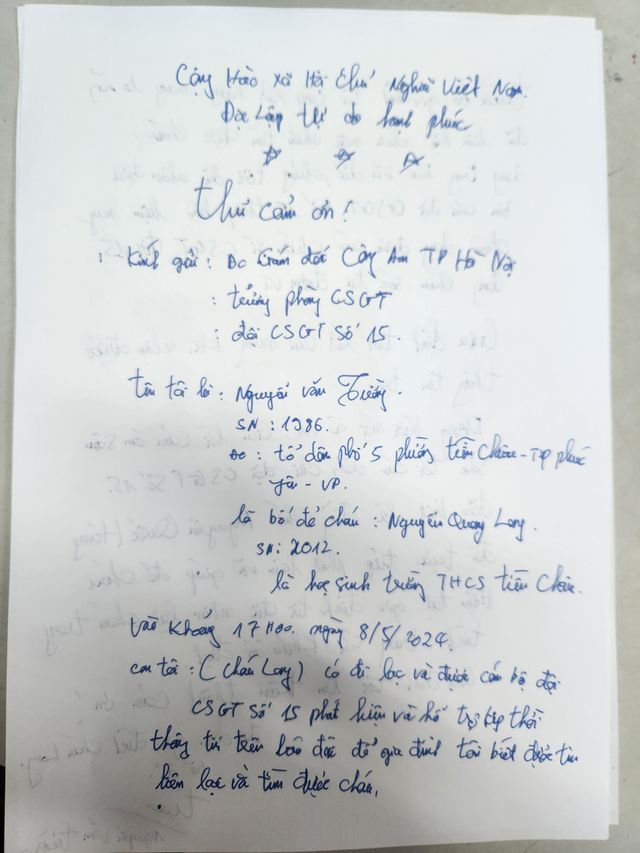 Cộng Hào xã Hội Chủ Nghĩa Việt Nam.
Độc lập tự do hạnh phúc
Thư cảm ơn!
Kính gửi: Đc Giám đốc Công An TP Hà Nội
: trưởng phòng CSGT
: đội CSGT Số 15.
Tên tôi là: Nguyễn văn Trường.
SN: 1986.
ĐC: tổ dân phố 5 phường tiền Châu - TP phúc
yên - VP.
là bố đẻ cháu: Nguyễn Quang Long.
SN: 2012.
là học sinh trường THCS tiền Châu.
Vào Khoảng 17H00. ngày 8/5/2024.
con tôi: (cháu Long) có đi lạc và được cán bộ đội
CSGT Số 15 phát hiện và hỗ trợ kịp thời
thông tin trên báo đài để gia đình tôi biết được tin
liên lạc và tìm được cháu,